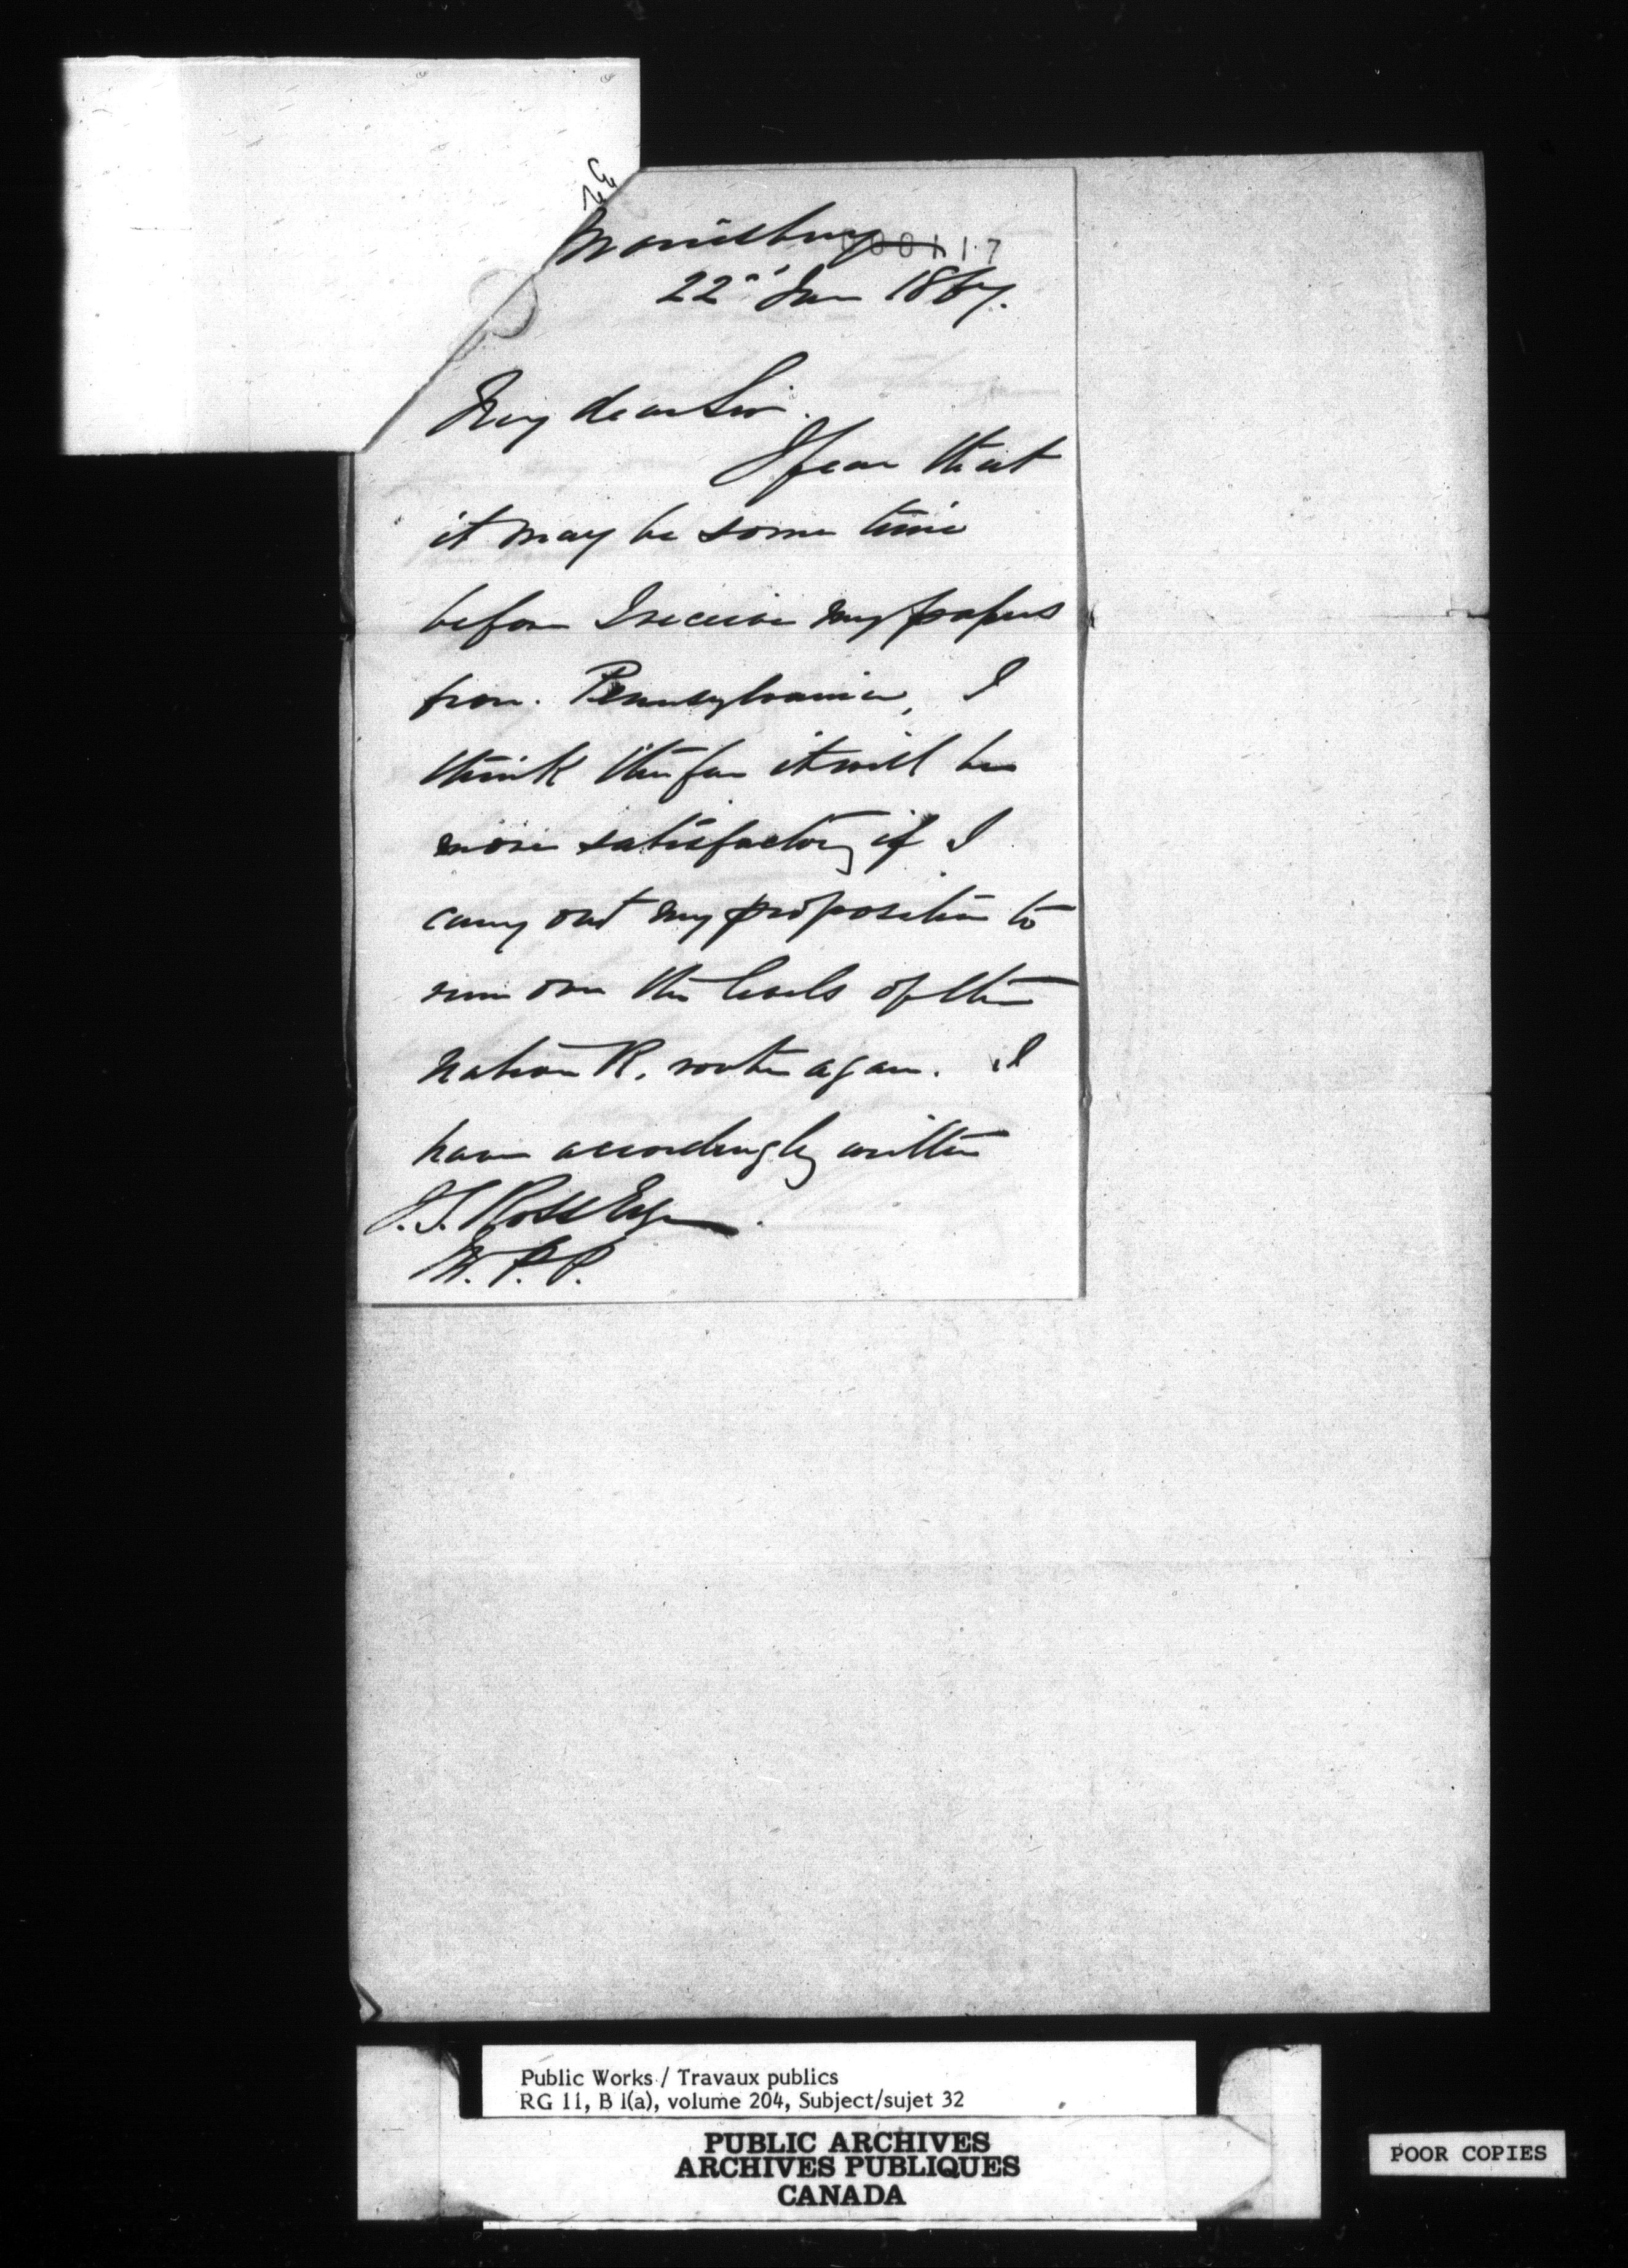 Morrisburg
000117
22nd Jan 1867.
My dear Sir.
I fear that
it may be some time
before I receive my papers
from Pennsylvania, I
think therefore it will be
more satisfactory if I
carry out my proposition to
run over the levels of the
Nation R. route again. I
have accordingly written
J.S. Ross Esqr.
M.P.P.
Public Works / Travaux publics
RG 11, B 1(a), volume 204, Subject/sujet 32
PUBLIC ARCHIVES
ARCHIVES PUBLIQUES
CANADA
POOR COPIES